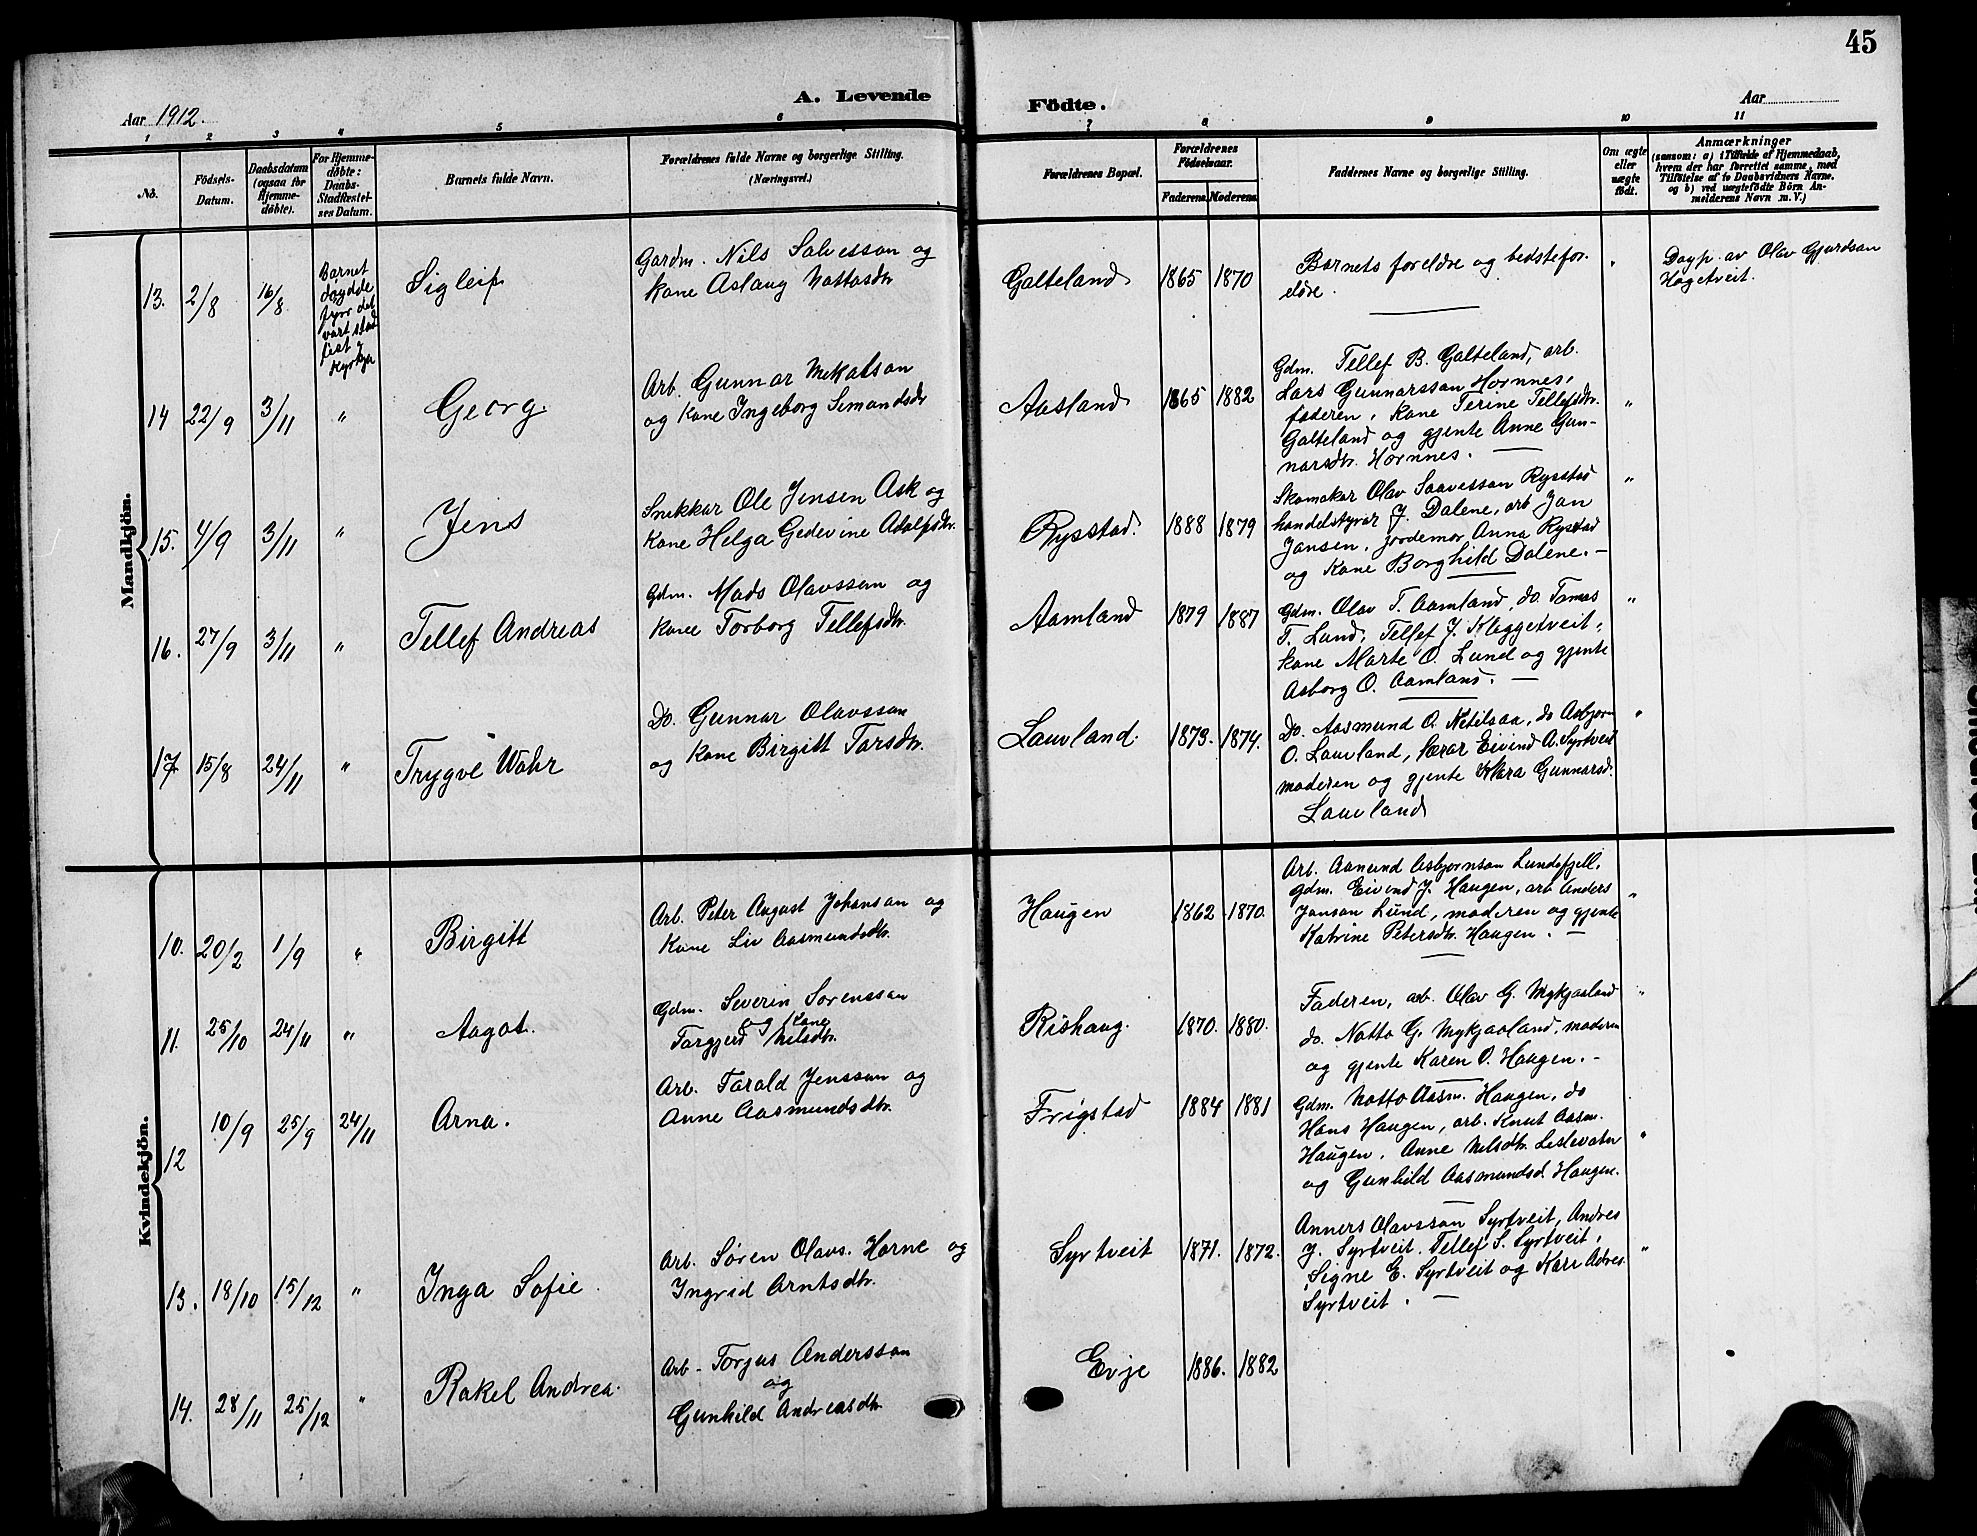 45
Aar 1912.
A. Levende
Födte.
Aar
1 2 3 4 5 6 7 8 9 10 11
No.
Födsels-
Datum.
Daabsdatum
(ogsaa for
Hjemme-
döbte).
For Hjemme-
döbte:
Daabs-
Stadfæstel-
ses Datum.
Barnets fulde Navn.
Forældrenes fulde Navne og borgerlige Stilling.
(Næringsvei.)
Forældrenes Bopæl.
Forældrenes
Födselsaar.
Faderens Moderens
Faddernes Navne og borgerlige Stilling.
Om ægte
eller
uægte
födt.
Anmærkninger
(saasom: a) i Tilfælde af Hjemmedaab,
hvem der har forrettet samme, med
Tilföielse af to Daabsvidners Navne.
og b) ved uægtefödte Börn An-
melderens Navn m. V.)
Mandkjön.
13. 2/8 16/8
Barnet
døydde
fyrr det
vart stad
fest i
Kyrkja
Sigleif
Gardm. Nils Salvesson og
kone Aslaug Nottosdtr
Galteland
1865 1870
Barnets foreldre og bedstefor-
eldre.
"
Døyp. av Olav Gjurdson
Høgetveit.
14 22/9 3/11 "
Georg
Arb. Gunnar Mekalson
og kone Ingeborg Simondsdtr
Aasland
1865 1882
Gdm. Tellef B. Galteland, arb.
Lars Gunnarsson Hornnes,
faderen, kone Terine Tellefsdtr.
Galteland og gjente Anne Gun-
narsdtr. Hornnes.
"
15. 4/9 3/11 "
Jens
Snekkar Ole Jensen Ask og
kone Helga Gedevine Adolfsdtr.
Rysstad.
1888 1879
Skomakar Olav Saavesson Rysstad
handelstyrar J. Dalene, arb Jan
Jansen, jordemor Anna Rysstad
og kone Borghild Dalene.
"
16. 27/9 3/11 "
Tellef Andreas
Gdm. Mads Olavsson og
kone Torborg Tellefsdtr.
Aamland
1879 1887
Gdm. Olav T. Aamland, do. Tomas
T. Lund, Tellef J. Kleggetveit,
kone Marte O. Lund og gjente
Asborg O. Aamland.
"
17 15/8 24/11 "
Trygve Wohr
Do. Gunnar Olavsson
og kone Birgitt Tarsdtr.
Lauvland.
1873. 1874.
Do. Aasmund O. Netilsaa, do Asbjørn
O. Lauvland, lærar Eivind A. Syrtveit
moderen og gjente Klara Gunnarsd.
Lauvland
"
Kvindekjön.
10. 20/2 1/9 "
Birgitt
Arb. Peter August Johanson og
kone Liv Aasmundsdtr.
Haugen
1862 1870.
Arb. Aanund Asbjornson Lundefjell,
gdm. Eivind J. Haugen, arb Anders
Janson Lund, moderen og gjente
Katrine Petersdtr. Haugen.
"
11. 25/10 24/11 "
Aagot.
Gdm. Severin Sorensson
og kone
Torgjerd Nilsdtr.
Rishaug.
1870. 1880.
Faderen, arb. Olav G. Mykjaaland
do. Notto G. Mykjaaland, moderen
og gjente Karen O. Haugen.
"
12 10/9 25/9 24/11
Arna.
Arb. Tarald Jensson og
Anne Aasmundsdtr.
Frigstad
1884 1881
Gdm. Notto Aasm. Haugen, do
Hans Haugen, arb. Knut Aasm.
Haugen, Anne Nilsdtr. Leslevatn
og Gunhild Aasmundsd. Haugen.
"
13. 18/10 15/12 "
Inga Sofie.
Arb. Søren Olavs. Horne og
Ingrid Arntsdtr.
Syrtveit
1871. 1872.
Anners Olavsson Syrtveit, Andres
J. Syrtveit. Tellef S. Syrtveit,
Signe E. Syrtveit og Kari Adres
Syrtveit.
"
14. 28/11 25/12 "
Rakel Andrea.
Arb. Torjus Andersson
og
Gunhild Andreasdtr.
Evje
1886. 1882